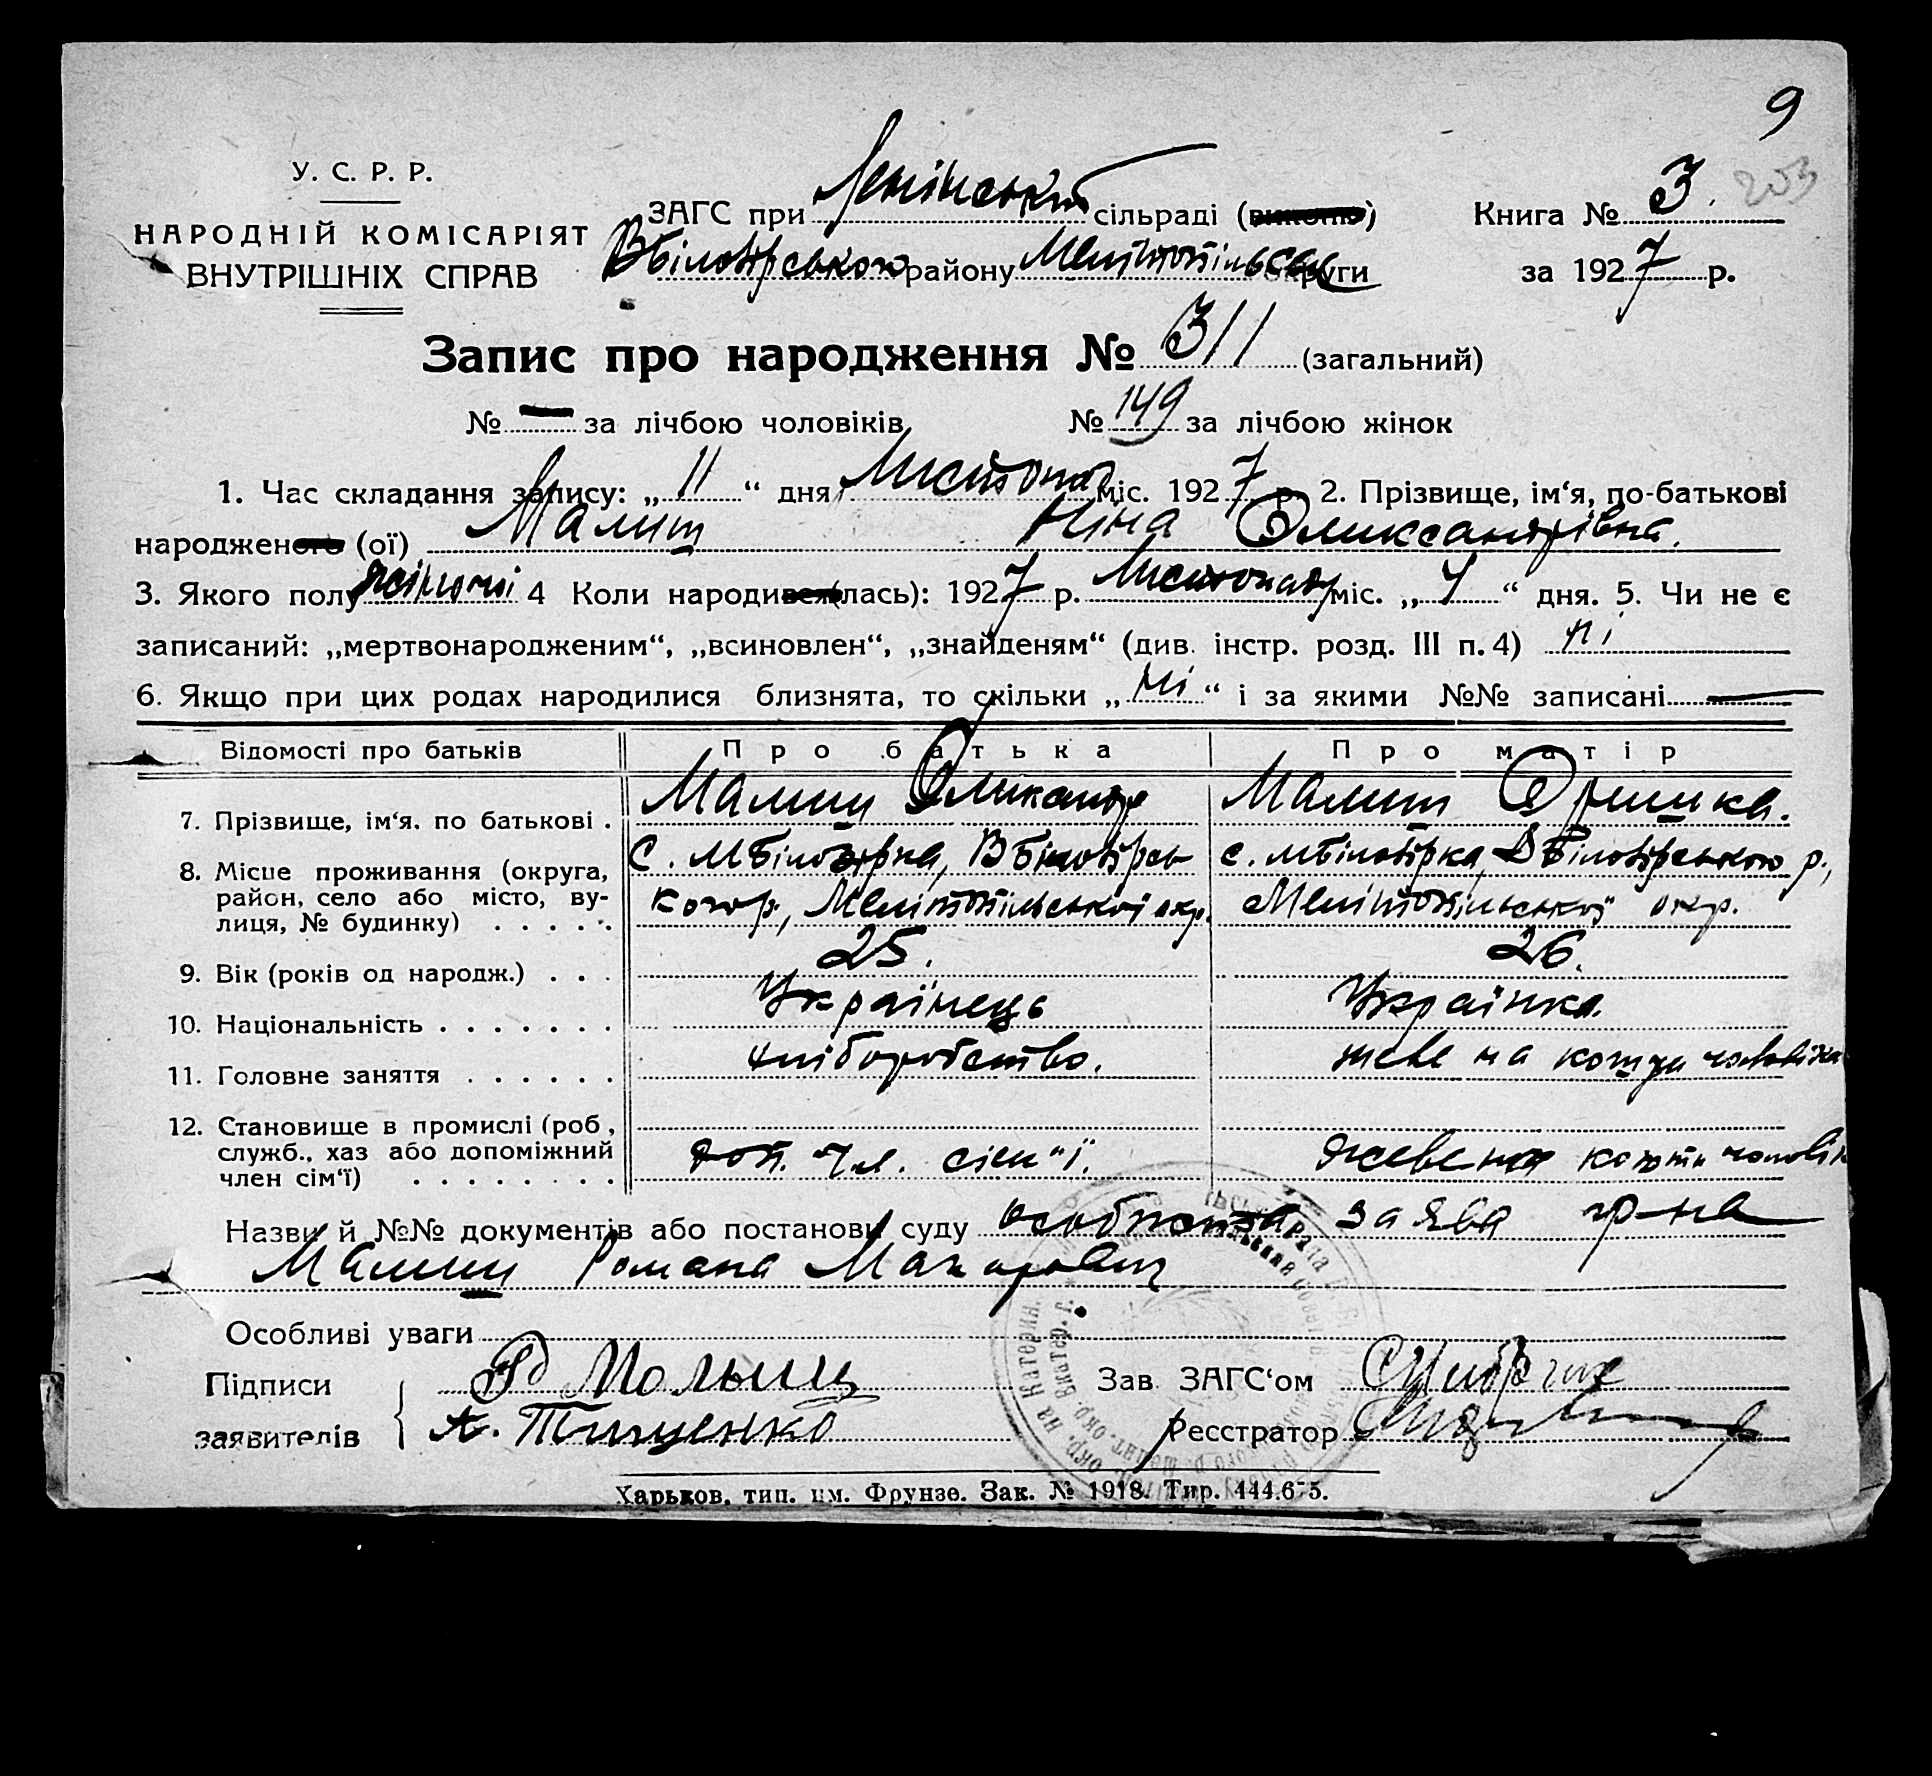 9
203
У. С. Р. Р.
НАРОДНІЙ КОМІСАРІЯТ
ВНУТРІШНІХ СПРАВ
ЗАГС при Ленінській сільраді
Вбілозірського району Мелітопільськ округи
Книга № 3.
за 1927 р.
Запис про народження № 311 (загальний)
№ — за лічбою чоловіків № 149 за лічбою жінок
1. Час складання запису: „ 11 “ дня Листопад міс. 1927 р. 2. Прізвище, ім‘я, по-батькові
народженого (ої) Малиш Ніна Олександрівна.
3. Якого полу жіночої 4 Коли народи (лась): 1927 р. Листопаду міс. „ 4 “ дня. 5. Чи не є
записаний: „мертвонародженим“, „всиновлен“, „знайденям“ (див. інстр. розд. III п. 4) ні
6. Якщо при цих родах народилися близнята, то скільки „ ні “ і за якими №№ записані —
Відомості про батьків Про батька Про матір
7. Прізвище, ім‘я, по батькові . Малиш Олександр Малиш Оришка.
8. Місце проживання (округа, район, село або місто, вулиця, № будинку) . . . . . с. Мбілозірка, Вбілозірсь
кого р., Мелітопільської окр. с. Мбілозірка, Вбілозірського р.,
Мелітопільської окр.
9. Вік (років од народж.) . . . 25. 26.
10. Національність . . . . . . . Українець Українка.
11. Головне заняття . . . . . . хліборобство. живе на кошти чоловіка
12. Становище в промислі (роб, служб., хаз або допоміжний член сім‘ї) . . . . . . . . доп. чл. сім"ї. живе на кошти чоловік
Назви й №№ документів або постанови суду особиста заява гр-на
Малиш Романа Макаровича
Особливі уваги
Підписи
заявителів
Малыш
А. Тищенко
Зав ЗАГС‘ом
Реєстратор
Харьков, тип. им. Фрунзе. Зак. № 1918. Тир. 444.675.